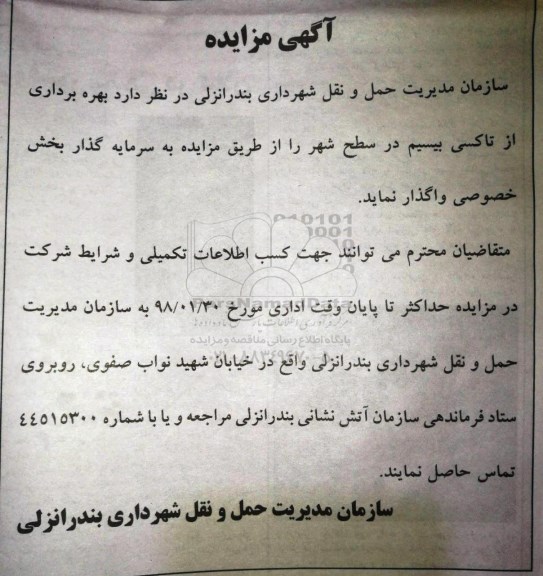 آگهی مزایده
سازمان مدیریت حمل و نقل شهرداری بندرانزلی در نظر دارد بهره برداری
از تاکسی بیسیم در سطح شهر را از طریق مزایده به سرمایه گذار بخش
خصوصی واگذار نماید.
متقاضیان محترم می توانند جهت کسب اطلاعات تکمیلی و شرایط شرکت
در مزایده حداکثر تا پایان وقت اداری مورخ ۹۸/۰۱/۳۰ به سازمان مدیریت
حمل و نقل شهرداری بندرانزلی واقع در خیابان شهید نواب صفوی، روبروی
ستاد فرماندهی سازمان آتش نشانی بندرانزلی مراجعه و یا با شماره ٤٤٥١٥٣٠٠
تماس حاصل نمایند.
سازمان مدیریت حمل و نقل شهرداری بندرانزلی
ParsNamadData
پایگاه اطلاع رسانی مناقصه و مزایده